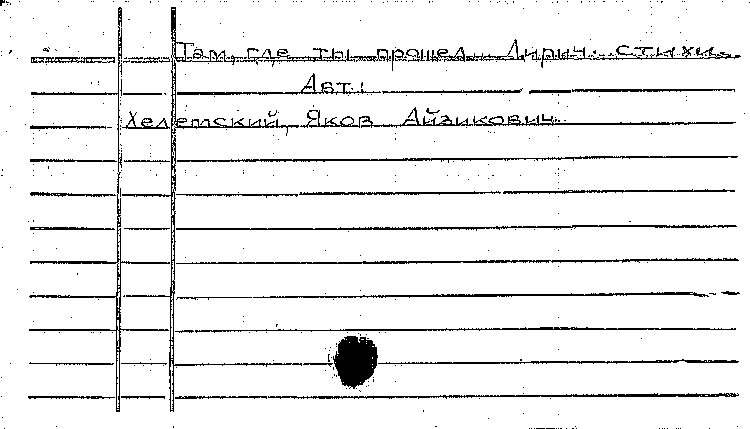 Там, где ты прошел... Лирич. стихи.
Авт.:
Хелемский, Яков Айзикович